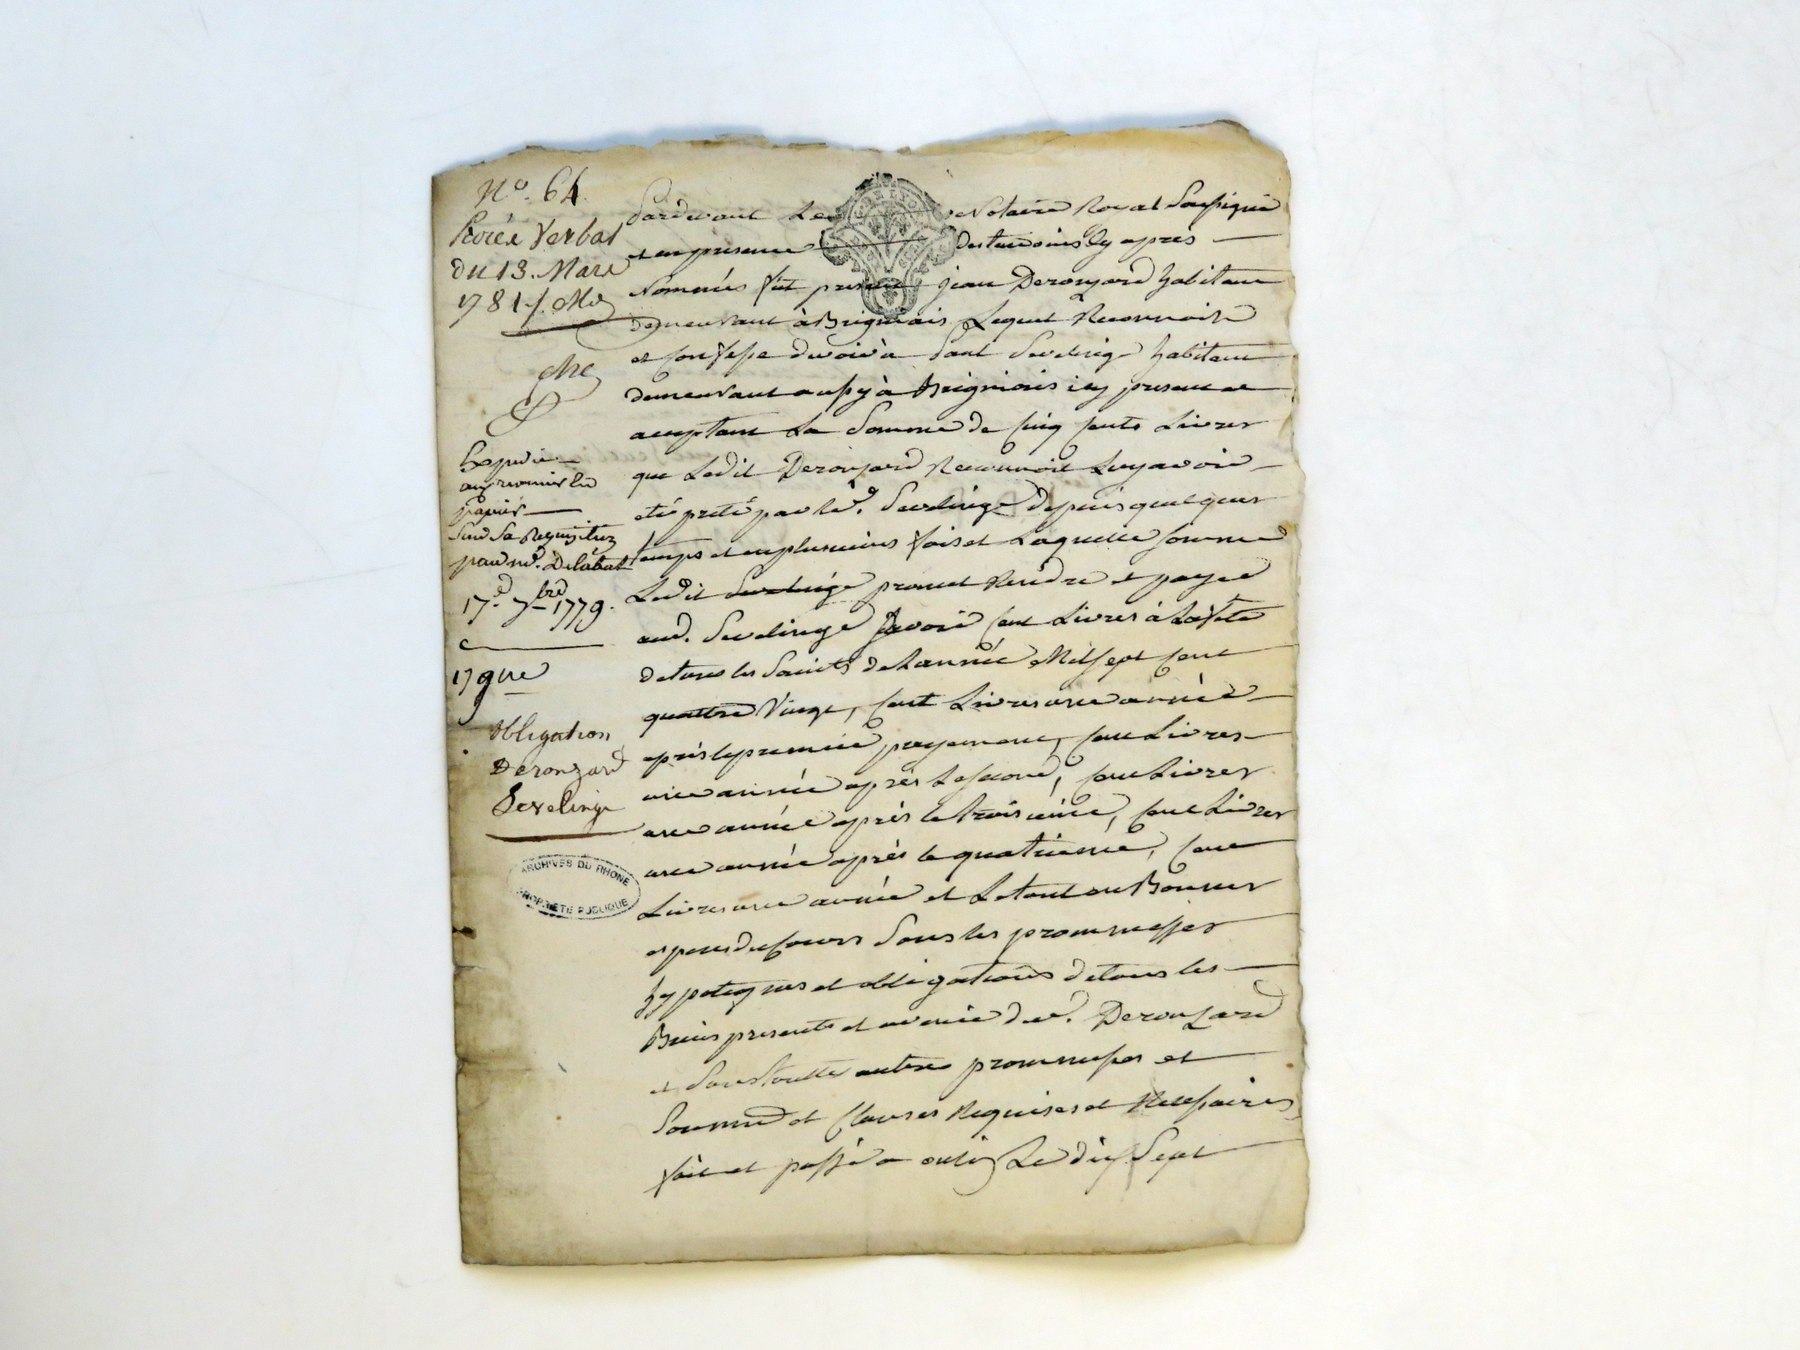 N.º 64
Procés Verbal
du 13. Mars
1781
Expedié
sur sa Requisition
par md. Delabal
17.e 7bre 1779.
obligation
Deronzard
Sevelinge
ARCHIVES DU RHONE
PROPRIÉTÉ PUBLIQUE
Pardevant Le Notaire Royal Soussigné
et en presence des temoins cy après
Nommés fut present jean Deronzard habitant
demeurant à Brignais Lequel Reconnoit
et confesse devoir à Paul Sevelinge habitant
demeurant aussy à Brignais icy present et
acceptant La Somme de cinq cents Livres
que Ledit Deronzard Reconnoit Luy avoir
eté preté par led. Sevelinge depuis quelques
temps et en plusieurs fois et Laquelle somme
Ledit Sevelinge promet Rendre et payer
aud. Sevelinge Savoir cent Livres à La fete
de tous les Saints de Lannée Mil sept cent
quattre Vingt, cent Livres une année
après le premier payement, cent Livres
une année après Le second, cent Livres
une année après le troisieme, cent Livres
une année après le quatrieme, cent
Livres une année et Le tout en Bonnes
especes du Cours Sous les prommesses
hypoteques et obligations de tous les
Biens presents et avenir dud. Deronzard
et Sous toutte autres prommesses et
Soumis et Clauses Requises et Necessaires
fait et passé a oulin Le dix Sept